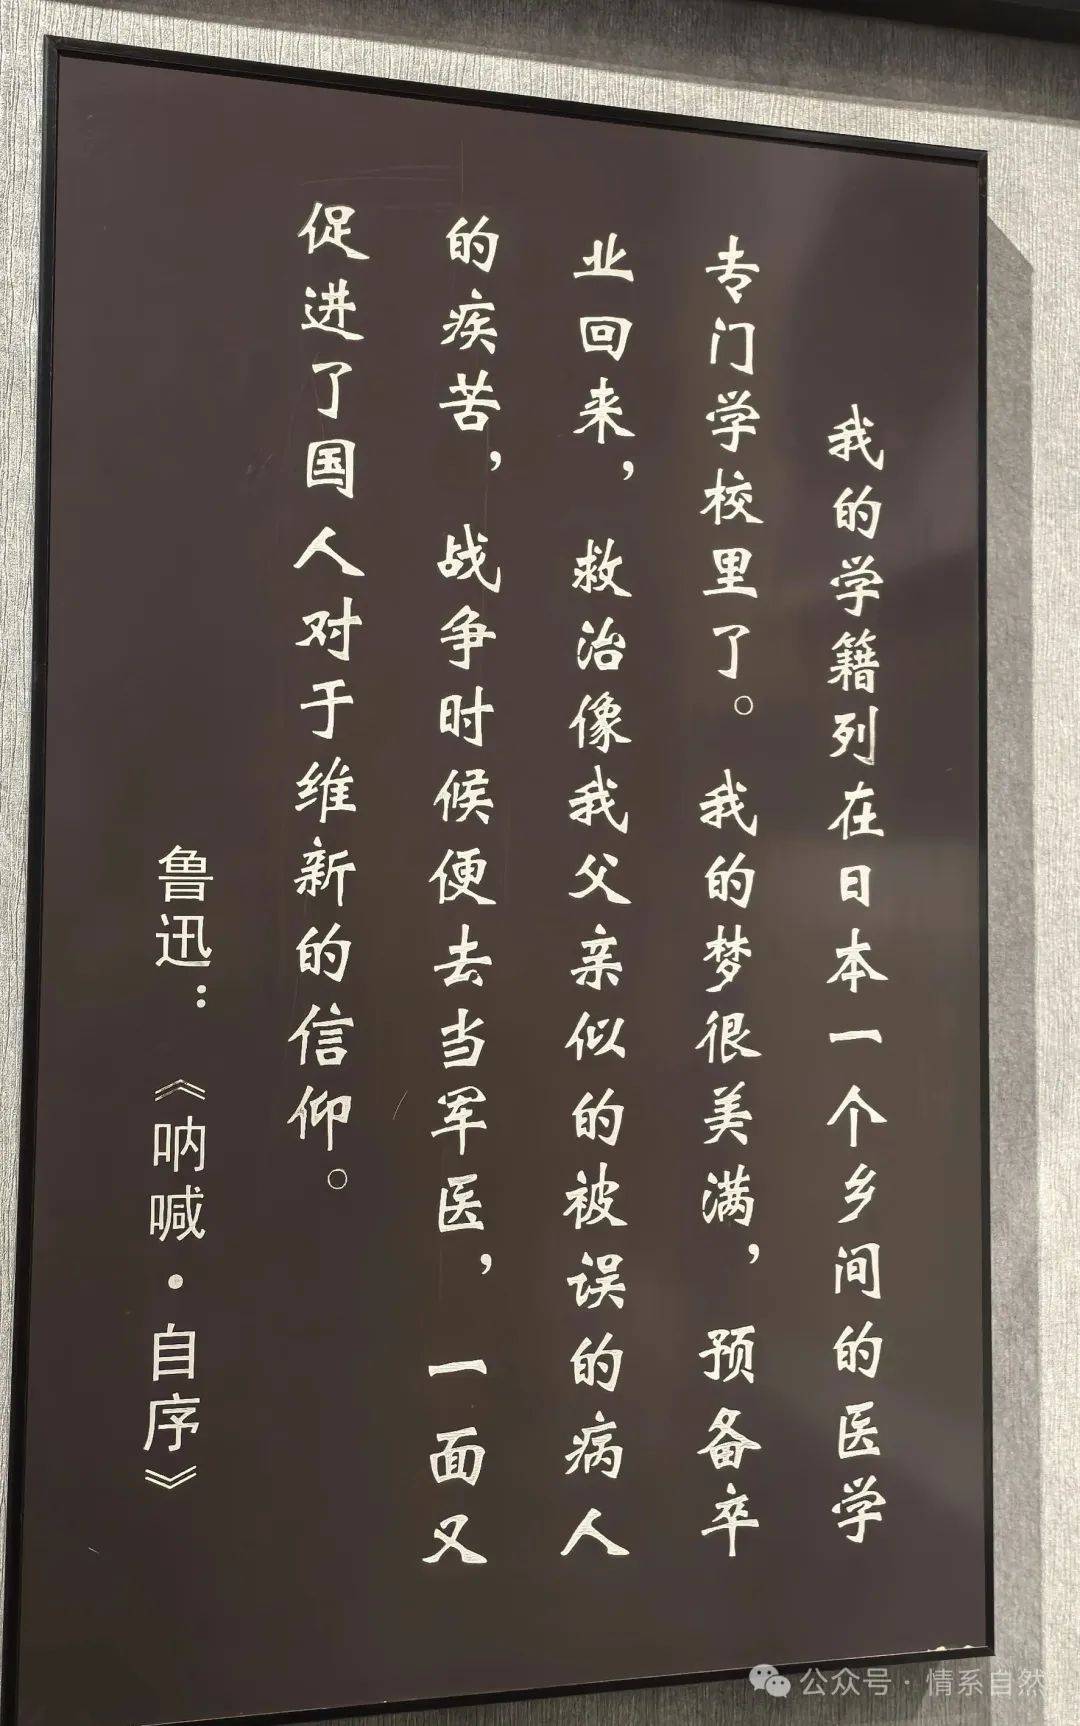 我的学籍列在日本一个乡间的医学
专门学校里了。我的梦很美满，预备卒
业回来，救治像我父亲似的被误的病人
的疾苦，战争时候便去当军医，一面又
促进了国人对于维新的信仰。
鲁迅：《呐喊·自序》
公众号·情系自然